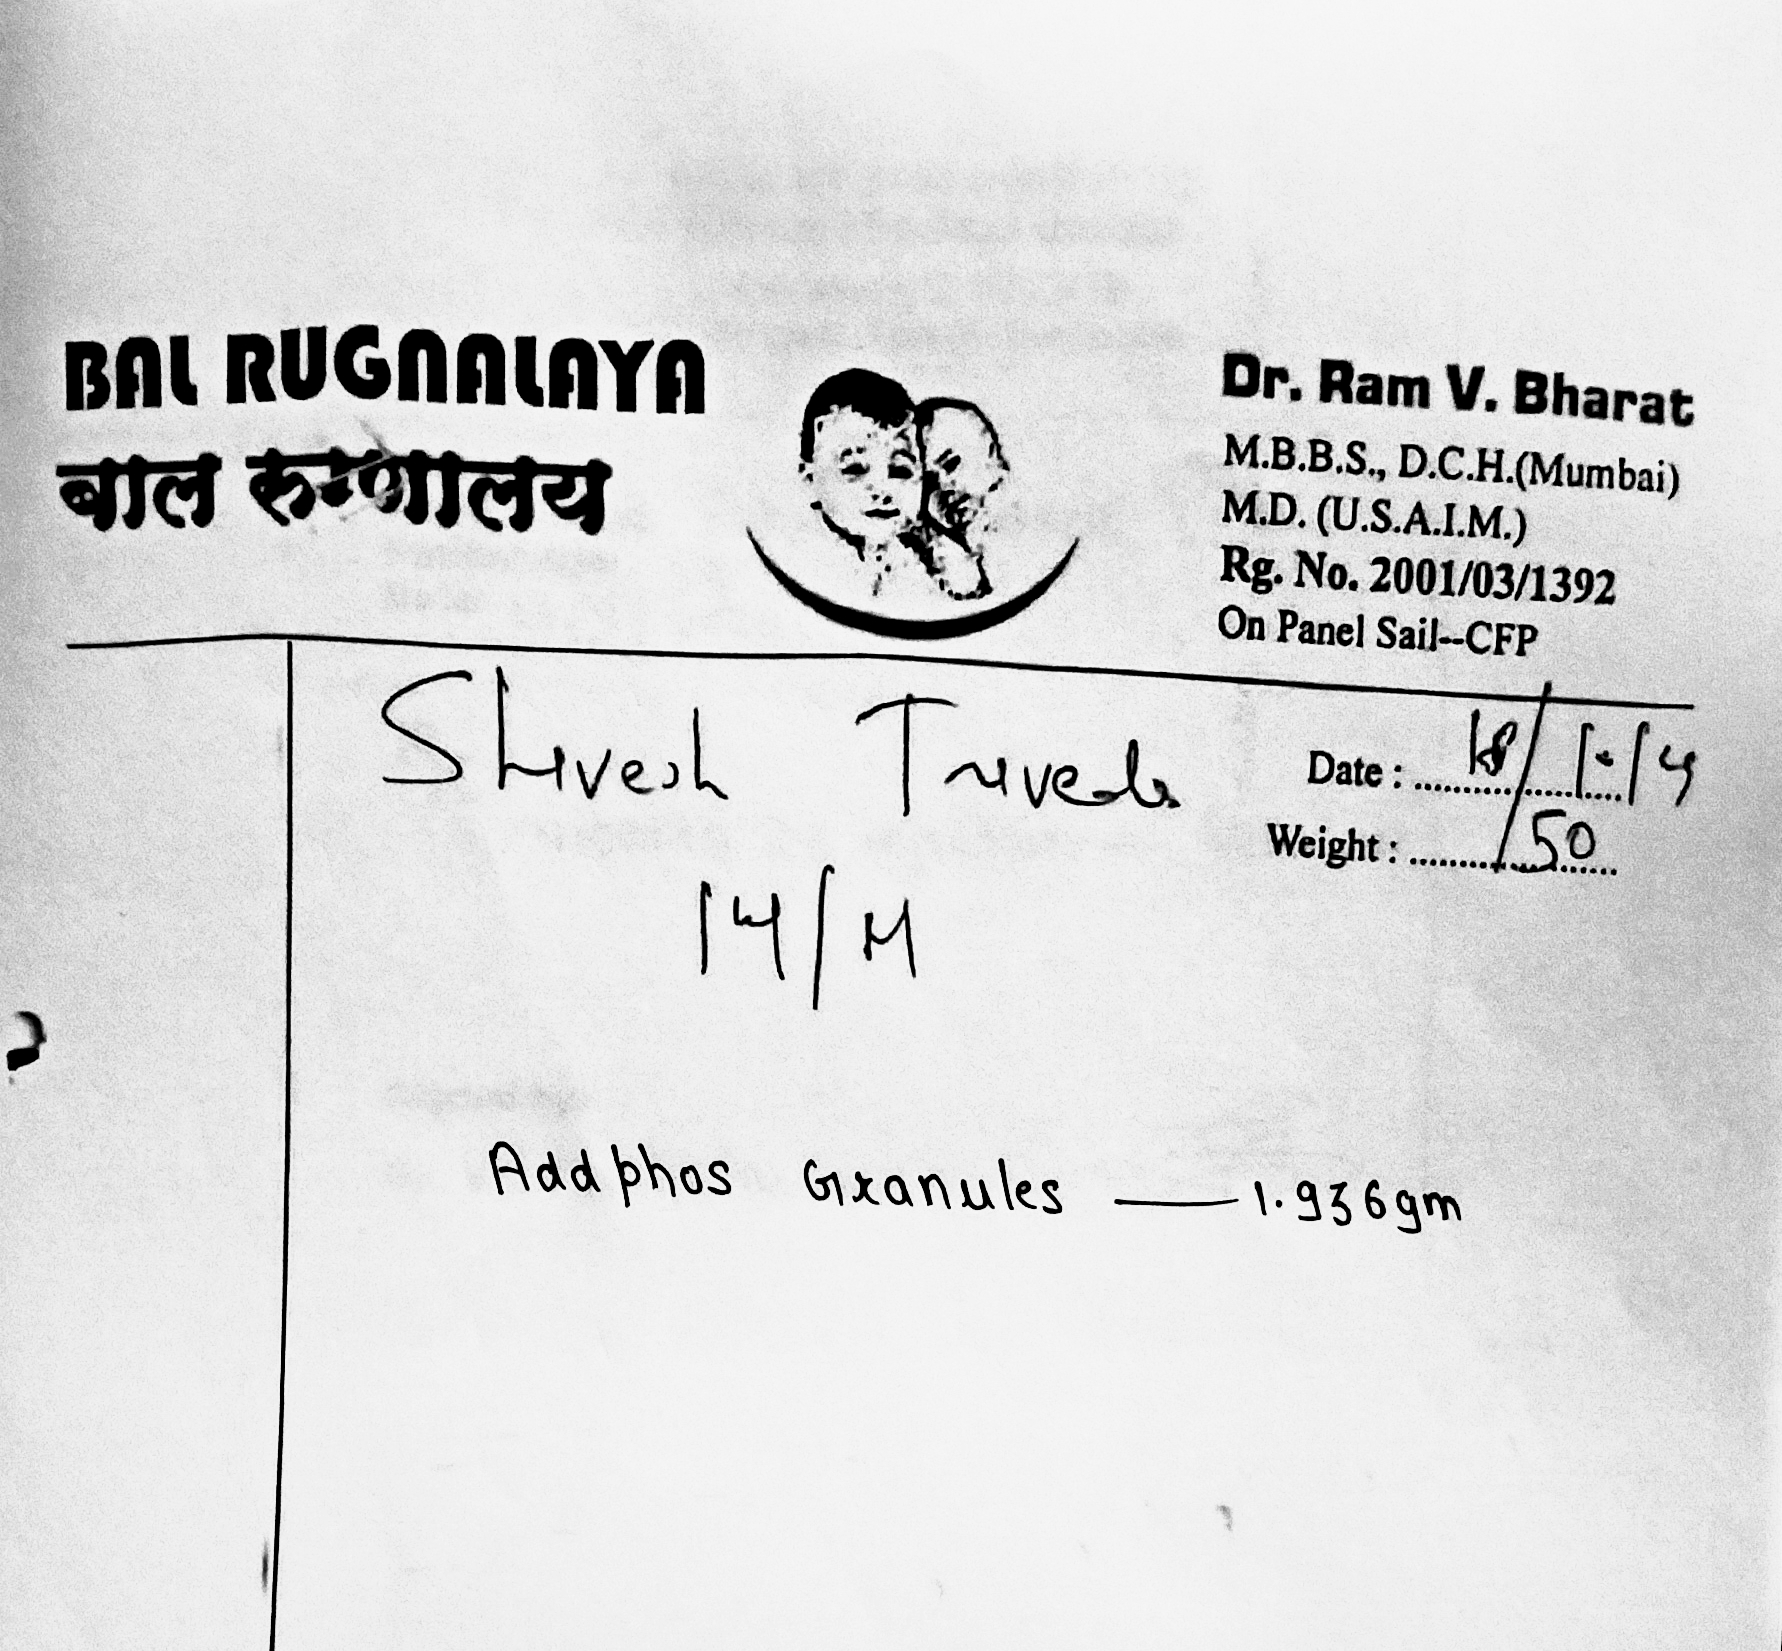 BAL RUGNALAYA
बाल रुग्णालय
Dr. Ram V. Bharat
M.B.B.S., D.C.H.(Mumbai)
M.D. (U.S.A.I.M.)
Rg. No. 2001/03/1392
On Panel Sail--CFP
Shivesh Trivedi
Date : 18/10/14
Weight : 50
14/M
Addphos Granules — 1.936gm